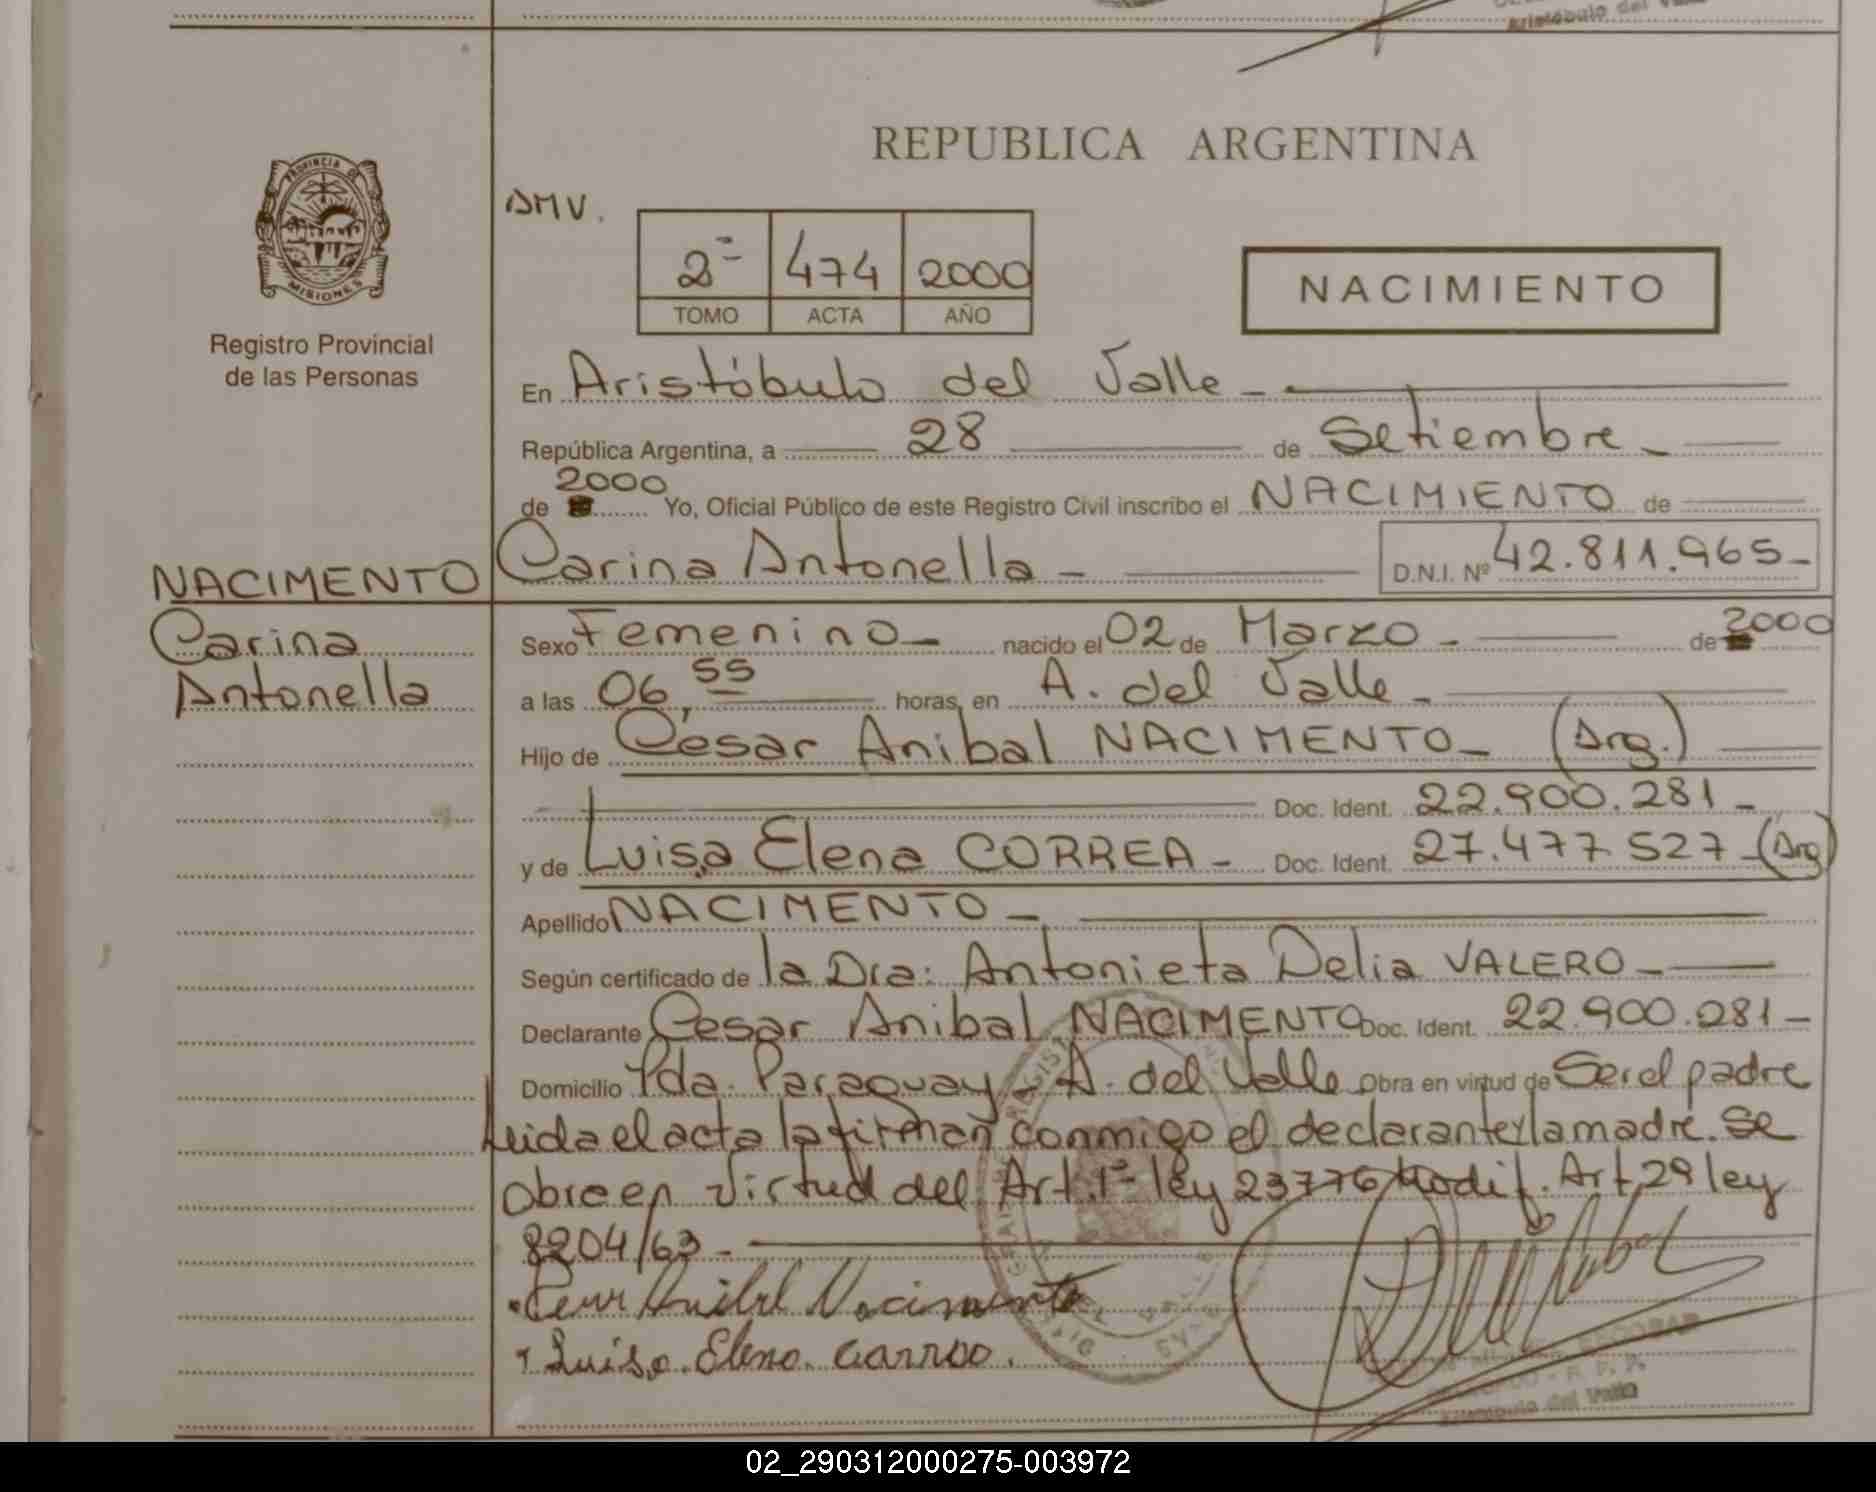 Aristóbulo del
REPUBLICA ARGENTINA
PROVINCIA DE
MISIONES
Registro Provincial
de las Personas
AMV.
2º 474 2000
TOMO ACTA AÑO
NACIMIENTO
En Aristóbulo del Valle -
República Argentina, a 28 de Setiembre -
2000
de Yo, Oficial Público de este Registro Civil inscribo el NACIMIENTO de
Carina Antonella - D.N.I. Nº 42.811.965-
NACIMENTO
Carina
Antonella
Sexo Femenino - nacido el 02 de Marzo - de 2000
a las 06,55 horas, en A. del Valle -
Hijo de César Anibal NACIMENTO - (Arg.)
Doc. Ident. 22.900.281 -
y de Luisa Elena CORREA - Doc. Ident. 27.477.527 - (Arg)
Apellido NACIMENTO -
Según certificado de la Dra: Antonieta Delia VALERO -
Declarante Cesar Anibal NACIMENTO Doc. Ident. 22.900.281 -
Domicilio Pda. Paraguay A. del Valle Obra en virtud de Ser el padre
Leida el acta la firman conmigo el declarante y la madre. Se
obra en virtud del Art. 1º ley 23776 Modif. Art 29 ley
8204/63 -
Cesar Anibal Nacimento
Luisa Elena Correa.
ESCOBAR
Aristóbulo del Valle
02_290312000275-003972